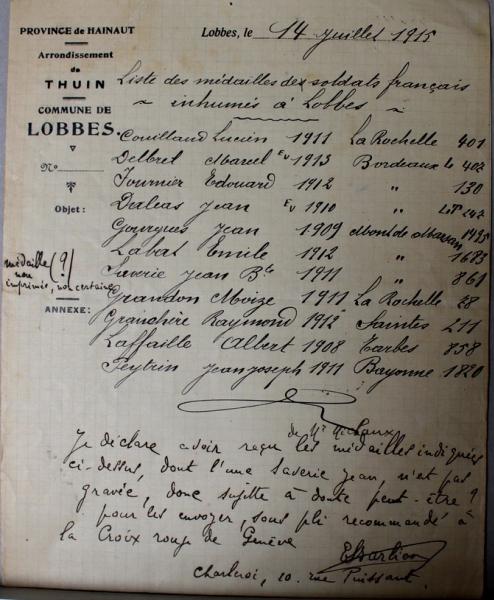 PROVINCE de HAINAUT
Arrondissement
de
THUIN
COMMUNE DE
LOBBES.
No
Objet :
médaille (?)
non
imprimée, non certaine
ANNEXE:
Lobbes, le 14 Juillet 1915
Liste des médailles des soldats français
~ inhumés à Lobbes ~
Couilland Lucien 1911 La Rochelle 401
Delbret Marcel Ev 1913 Bordeaux le 402
Fournier Edouard 1912 " 130
Daleas Jean Ev 1910 " 242
Gourgues Jean 1909 Mont de Marsan 1495
Labat Emile 1912 " 1683
Saverie Jean Bte 1911 " 861
Grandon Moïze 1911 La Rochelle 28
Granchère Raymond 1912 Saintes 211
Laffaille Albert 1908 Tarbes 858
Peytrin Jean Joseph 1911 Bayonne 1820
de Mr Michaux
Je déclare avoir reçu les médailles indiquées
ci-dessus, dont l'une Saverie Jean, n'est pas
gravée, donc sujette à doute peut-être ?
pour les envoyer, sous pli recommandé à
la Croix rouge de Genève
Charleroi, 20. rue Puissant.